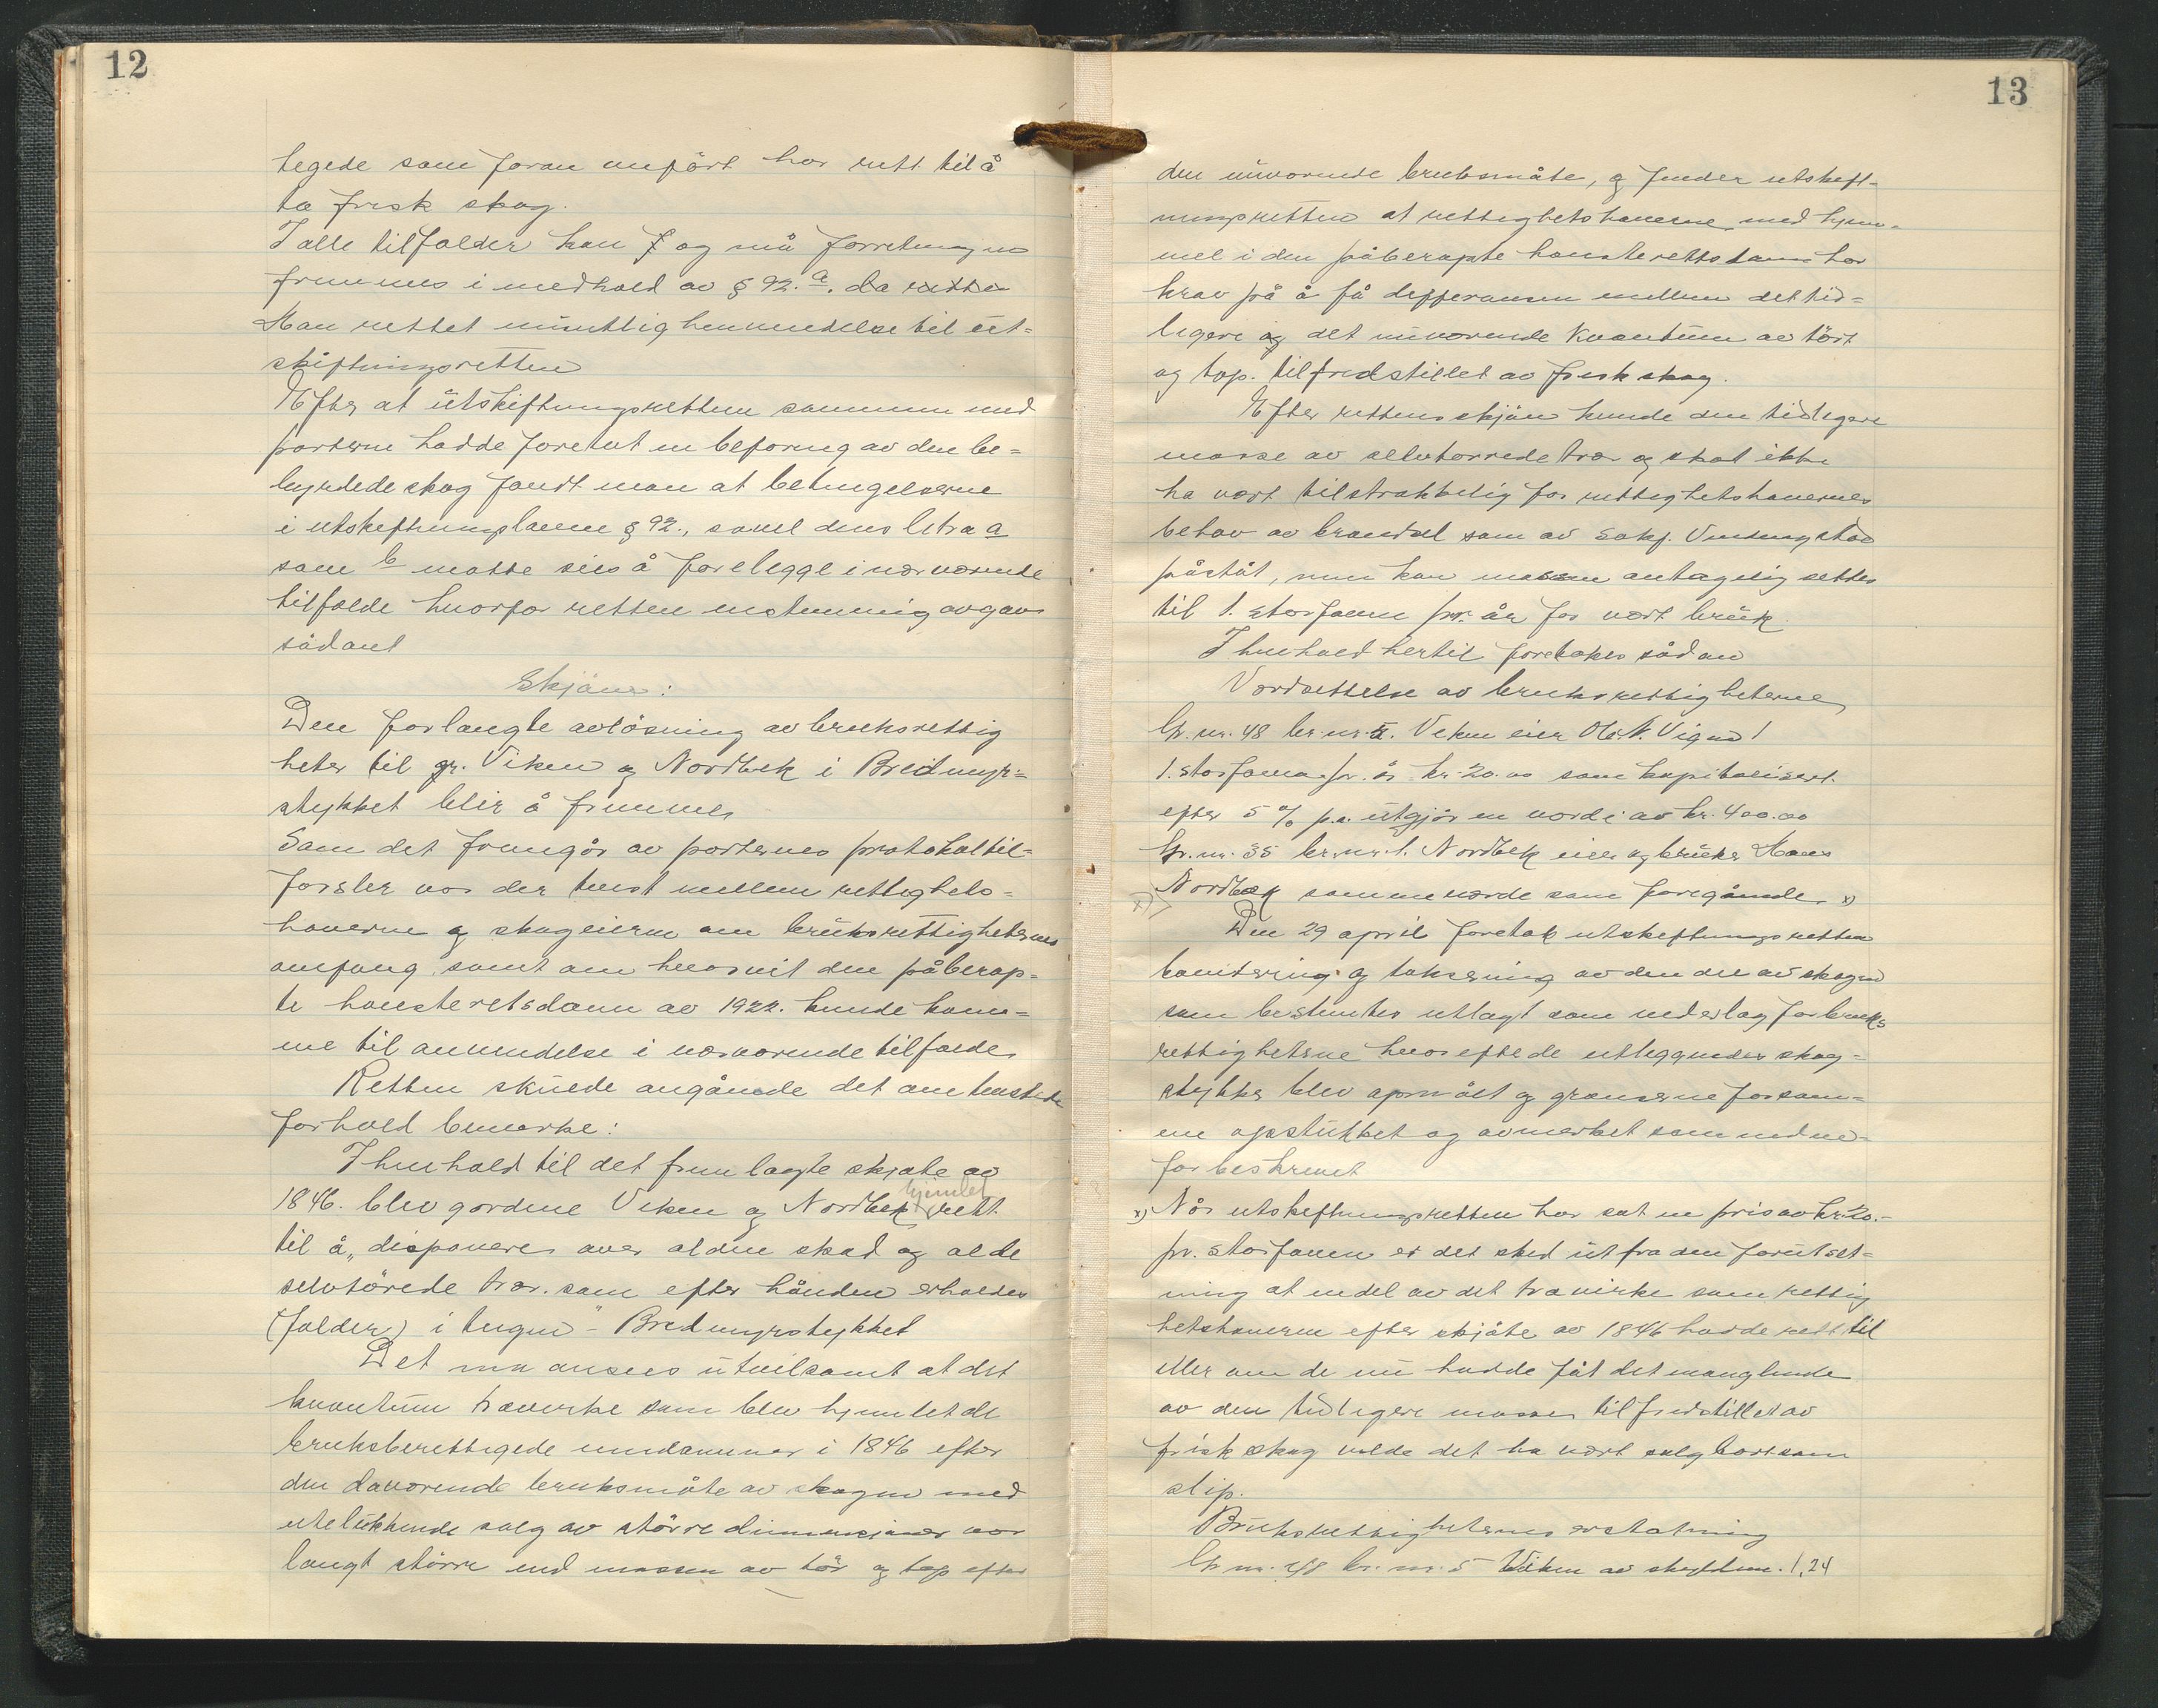 12
tegede som foran anført har rett til å
ta frisk skog.
I alle tilfælder kan og må forretningen
fremmes i medhold av § 92. a. da rette
Man rettet mundtlig henvendelse til ut-
skiftningsretten
Efter at utskiftningsretten sammen med
parterne hadde foretat en befaring av den be-
heftede skog fandt man at betingelserne
i utskiftningsloven § 92., savel dens litra a
som b matte sies å forelegge i nærværende
tilfælde hvorfor retten enstemmig avgav
sådant
Skjønn:
Den forlangte avløsning av bruksrettig
heter til gr. Viken og Nordbek i Breidmyr-
stykket blir å fremme,
Som det fremgår av parternes protokoltil-
førsler var der tvist mellem rettighets-
haverne og skogeierne om bruksrettighetenes
omfang, samt om hvorvit den påberop-
te høiesteretsdom av 1922. kunde kom-
me til anvendelse i nærværende tilfælde
Retten skulde angående det omtvistede
forhold bemerke:
I henhold til det fremlagte skjøte av
1846. blev gardene Viken og Nordbek hjemlet rett
til å „disponere over al den skad og alde
selvtørede trær. som efter hånden erholdes
(falder) i tugen" - Bredmyrstykket
Det ma ansees utvilsomt at det
kvantum trævirke som blev hjemlet de
bruksberettigede eiendommer i 1846 efter
den daværende bruksmåte av skogen med
utelukkende salg av større dimensjoner var
langt større end massen av tør og top efter
13
den nuværende bruksmåte, og finder utskift-
ningsretten at rettighetshaverne med hjem-
mel i den påberopte høiesterettsdom har
krav på å få differansen mellem det tid-
ligere og det nuværende kvantum av tørt
og top. tilfredstillet av frisk skog.
Efter rettens skjøn kunde den tidligere
masse av selvtørrede trær og skat ikke
ha vært tilstrækkelig for rettighetshavernes
behov av brændsel som av Sakf.
påståt, men kan massen antagelig settes
til 1. storfavn pr. år for vært bruk.
I henhold hertil foretokes sådan
Verdsettelse av bruksrettigheterne,
Gr. nr. 48 br. nr. 5. Viken eier Ole N. Vigen 1
1. storfavn pr. år kr. 20.00 som kapitalisert
efter 5 % p.a. utgjør en verdi av kr. 400.00
Gr. nr. 55 br. nr. 1. Nordbek eier og bruker Hans
Nordbek samme verde som foregående x)
Den 29 april foretok utskiftningsretten
bonitering og taksering av den del av skogen
som bestemtes utlagt som vederlag for bruks
rettigheterne hvorefte de utleggendes skog-
stykker blev opmålt og grænserne for sam-
me opstukket og avmerket som neden-
for beskrevet
x) Når utskiftningsretten har sat en pris av kr. 20.-
pr. storfavn er det sked ut fra den forutset-
ning at endel av det trævirke som rettig
hetshaverne efter skjøte av 1846 hadde rett til
eller om de nu hadde fåt det manglende
av den tidligere masse tilfredstillet av
frisk skog vilde det ha vært salgbart som
slip.
Bruksrettighetenes erstatning
Gr. nr. 48 br. nr. 5 Viken av skyldmr. 1,24